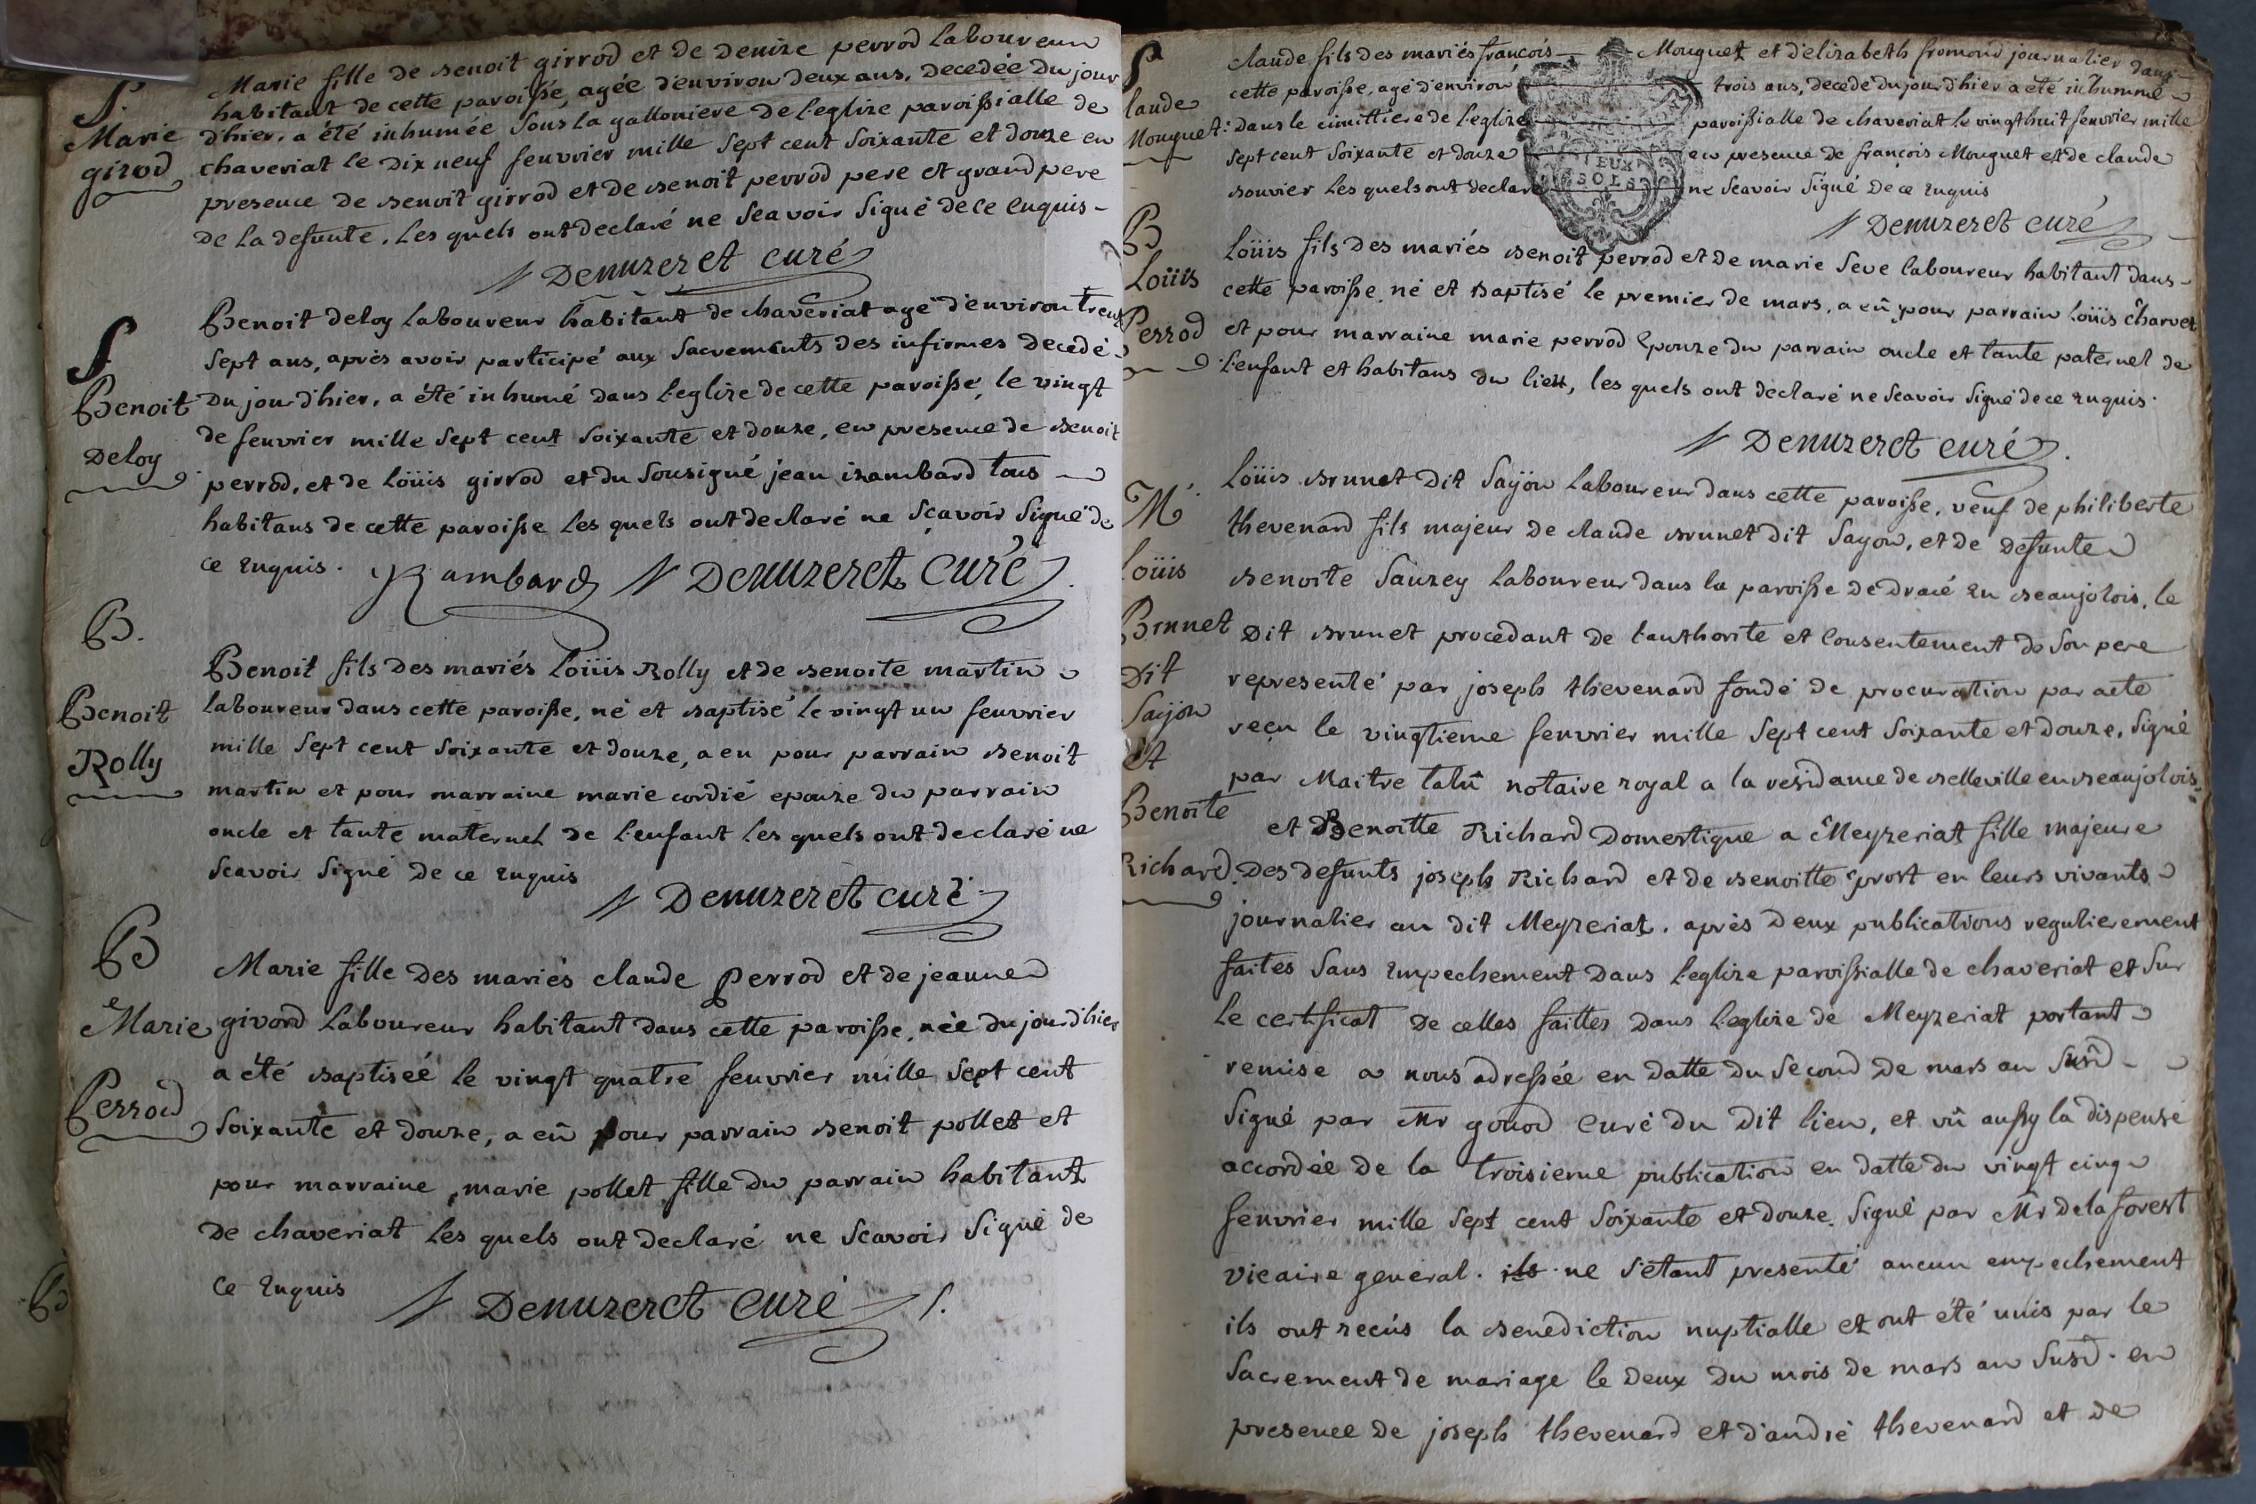 S.
Marie
girod
Marie fille de benoit girrod et de denize perrod laboureur
habitant de cette paroisse, agée d'environ deux ans, decedée du jour
d'hier, a été inhumée sous la galloniere de l'eglize paroissialle de
chaveriat le dix neuf feuvrier mille sept cent soixante et douze en
presence de benoit girrod et de benoit perrod pere et grand pere
de la defunte, les quels ont declaré ne scavoir signé de ce enquis -
Denuzeret curé
S
Benoit
Deloy
Benoit deloy laboureur habitant de chaveriat agé d'environ trente
sept ans, après avoir participé aux sacrements des infirmes decedé
du jour d'hier, a été inhumé dans l'eglize de cette paroisse, le vingt
de feuvrier mille sept cent soixante et douze, en presence de benoit
perrod, et de loüis girrod et du sousigné jean izambard tous
habitans de cette paroisse les quels ont declaré ne sçavoir signé de
ce enquis. Izambard Denuzeret curé
B.
Benoit
Rolly
Benoit fils des mariés loüis Rolly et de benoite martin
laboureur dans cette paroisse, né et baptisé le vingt un feuvrier
mille sept cent soixante et douze, a eu pour parrain benoit
martin et pour marraine marie cordié epouze du parrain
oncle et tante maternel de l'enfant les quels ont declaré ne
scavoir signé de ce enquis
Denuzeret curé
B
Marie
Perrod
Marie fille des mariés claude Perrod et de jeanne
givord laboureur habitant dans cette paroisse, née du jour d'hier
a été baptiséé le vingt quatre feuvrier mille sept cent
soixante et douze, a eû pour parrain benoit pollet et
pour marraine, marie pollet fille du parrain habitant
de chaveriat les quels ont declaré ne scavoir signé de
ce enquis Denuzeret curé
S
laude
Mouguet
claude fils des mariés françois Mouguet et d'elizabeth fromond journalier dans
cette paroisse, agé d'environ trois ans, decedé du jour d'hier a été inhummé
dans le cimittiere de l'eglize paroissialle de chaveriat le vingt huit feuvrier mille
sept cent soixante et douze en presence de françois Mouguet et de claude
bouvier les quels ont declaré ne scavoir signé de ce enquis
DEUX
SOLS
Denuzeret curé
B
Loüis
Perrod
loüis fils des mariés benoit perrod et de marie seve laboureur habitant dans
cette paroisse, né et baptisé le premier de mars, a eû pour parrain loüis charvet
et pour marraine marie perrod epouze du parrain oncle et tante paternel de
l'enfant et habitans du lieu, les quels ont declaré ne scavoir signé de ce enquis.
Denuzeret curé
M
loüis
Brunet
Dit
Sayon
et
Benoite
Richard
loüis brunet dit sayon laboureur dans cette paroisse, veuf de philiberte
thevenard fils majeur de claude brunet dit sayon, et de defunte
benoite sauzey laboureur dans la paroisse de dracé en beaujolois, le
dit brunet procedant de l'authorite et consentement de son pere
representé par joseph thevenard fondé de procuration par acte
reçu le vingtieme feuvrier mille sept cent soixante et douze, signé
par Maitre talû notaire royal a la residance de belleville en beaujolois
et Benoitte Richard domestique a Meyzeriat fille majeure
des defunts joseph Richard et de benoitte prost en leurs vivants
journalier au dit Meyzeriat. après deux publications regulierement
faites sans empechement dans l'eglize paroissialle de chaveriat et sur
le certificat de celles faittes dans l'eglize de Meyzeriat portant
remise a nous adressée en datte du second de mars an susd
signé par Mr curé du dit lieu, et vû aussy la dispense
accordée de la troisieme publication en datte du vingt cinq
feuvrier mille sept cent soixante et douze. signé par Mr delaforest
vicaire general. ils ne s'etant presenté aucun empechement
ils ont recûs la benediction nuptialle et ont été unis par le
sacrement de mariage le deux du mois de mars an susd. en
presence de joseph thevenard et d'andré thevenard et de